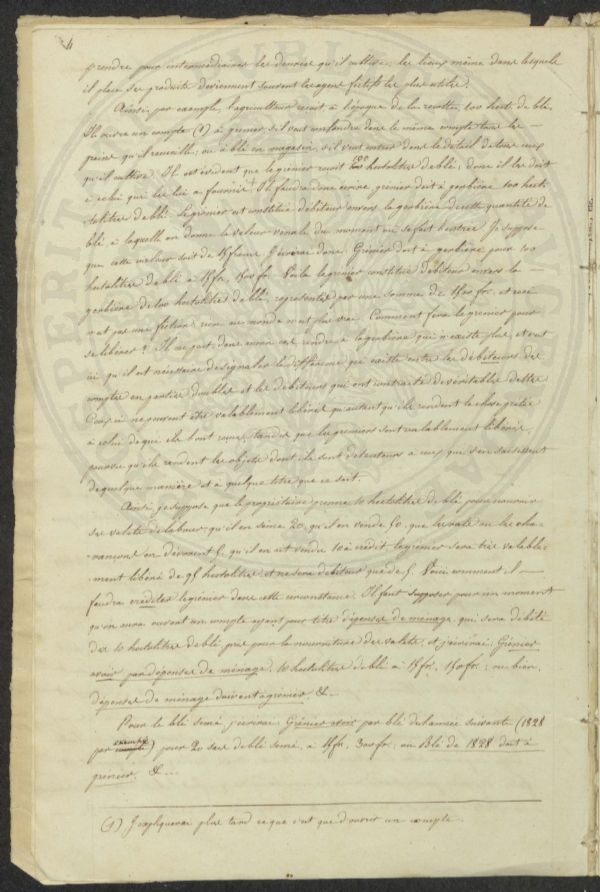 4
prendre pour intermédiaires les denrées qu'il cultive; les lieux même dans lesquels
il place ses produits deviennent souvent les agens fictifs les plus utiles.
Ainsi, par exemple, l'agriculteur reçoit à l'époque de la récolte, 100 hect. de blé,
Il ouvre un compte (1) à grenier, s'il veut confondre dans le même compte tous les
grains qu'il recueille; ou à blé en magasin, s'il veut entrer dans le détail de tous ceux
qu'il cultive. Il est évident que le grenier reçoit 100 hectolitres de blé; donc il les doit
à celui qui les lui a fournis. Il faudra donc écrire, grenier doit à gerbière 100 hect-
tolitres de blé. Le grenier est constitué débiteur envers la gerbière de cette quantité de
blé à laquelle on donne la valeur vénale du moment où se fait l'entrée. Je suppose
que cette valeur soit de 15 francs j'écrirai donc: Grenier doit à gerbière pour 100
hectolitres de blé à 15 fr. 1500 fr. Voila le grenier constitué débiteur envers la
gerbière de 100 hectolitres de blé, représentés par une somme de 1500 fr. et ceci
n'est pas une fiction, rien au monde n'est plus vrai. Comment fera le grenier pour
se libérer? Il ne peut, dans aucun cas, rendre à la gerbière qui n'existe plus, et c'est
ici qu'il est nécessaire de signaler la différence qui existe entre les débiteurs des
comptes en parties doubles et les débiteurs qui ont contracté de véritables dettes.
Ceux ci ne peuvent être valablement libérés qu'autant qu'ils rendent la chose prêtée
à celui de qui ils l'ont reçue, tandis que les greniers sont valablement libérés
pourvu qu'ils rendent les objets dont ils sont détenteurs à ceux qui s'en saisissent
de quelque manière et à quelque titre que ce soit.
Ainsi, je suppose que le propriétaire prenne 10 hectolitres de blé pour nourrir
ses valets de labour; qu'il en sème 20, qu'il en vende 50, que les rats ou les cha-
rançons en dévorent 5, qu'il en ait vendu 10 à crédit le grenier sera très valable-
ment libéré de 95 hectolitres, et ne sera débiteur que de 5. Voici comment il
faudra créditer le grenier dans cette circonstance. Il faut supposer pour un moment
qu'on aura ouvert un compte ayant pour titre dépenses de ménage, qui sera débité
des 10 hectolitres de blé pris pour la nourriture des valets, et j'écrirai: Grenier
avoir par dépenses de ménage, 10 hectolitres de blé à 15 fr., 150 fr.; ou bien,
dépenses de ménage doivent à grenier. &-
Pour le blé semé j'écrirai Grenier avoir par blé de l'année suivante (1828
par exemple) pour 20 sacs de blé semé, à 15 fr, 300 fr; ou Blé de 1828 doit à
grenier. &...
(1) J'expliquerai plus tard ce que c'est que d'ouvrir un compte.